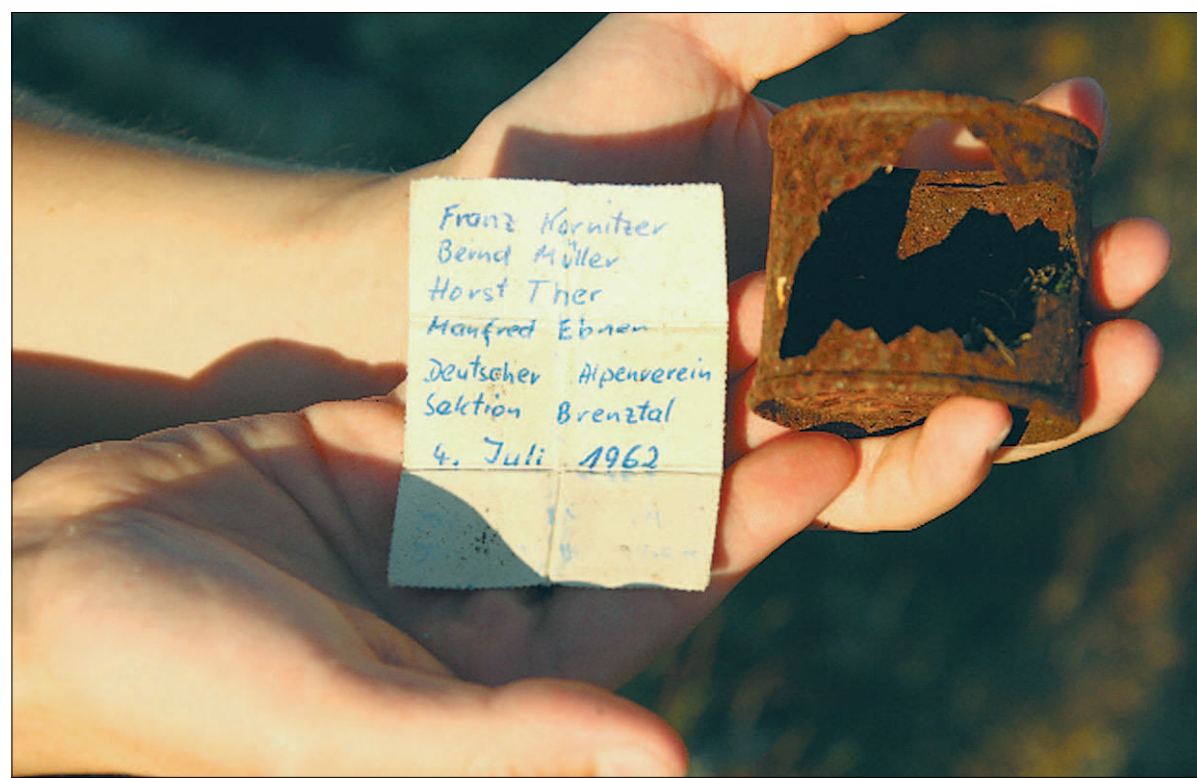 Franz Kornitzer
Bernd Müller
Horst Ther
Manfred Ebner
Deutscher Alpenverein
Sektion Brenztal
4. Juli 1962